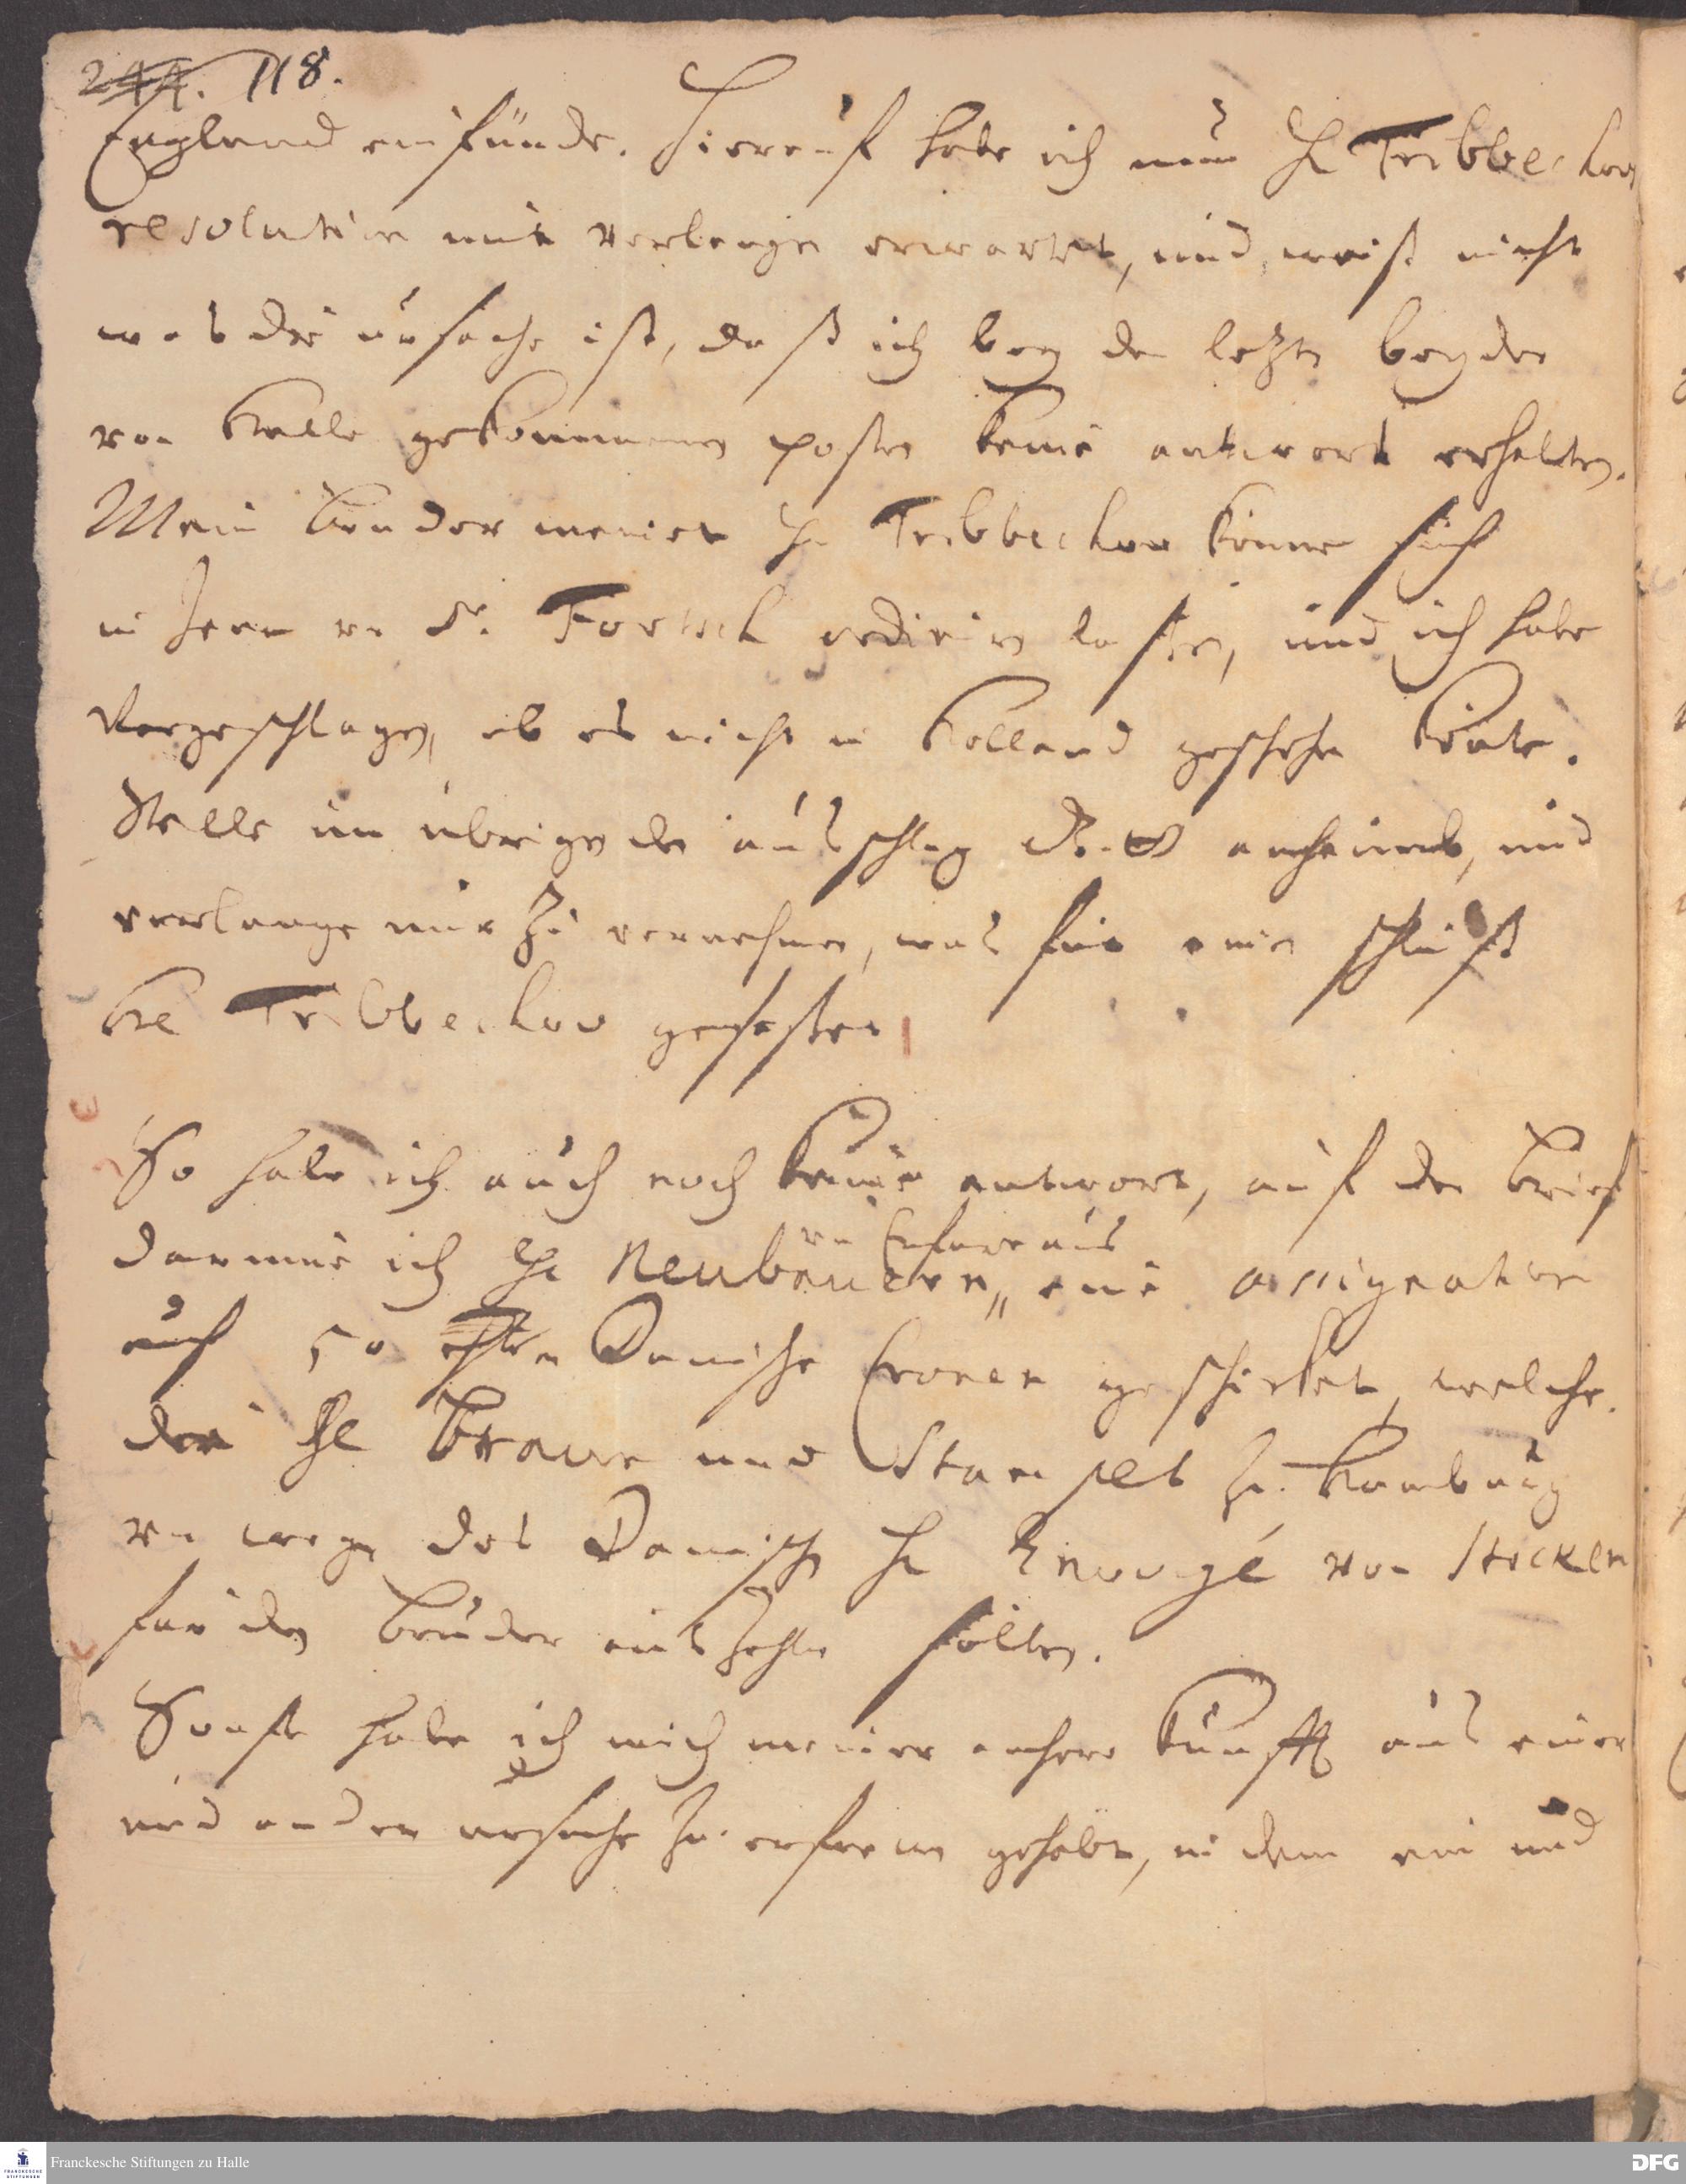 244. 118.
England einfünde. Hierauf habe ich nun H. Tribbechow
resolution mit verlangen erwartet, und weiß nicht
was die ursache ist, daß ich bey den letzten beyden
von Halle gekommenen posten keine antwort erhalten.
Mein bruder meinet H. Tribbechow könne sich
in Jena von D. ordiniren laßen, und ich habe
vorgeschlagen, ob es nicht in Holland geschehen könte.
Stelle im übrigen den ausschlag anheimb, und
verlange nur zu vernehmen, was für einen schluß
He Tribbechow gefaßet.
So habe ich auch noch keine antwort, auf den brief
darinne ich He Neubauern eine assignation
von hieraus
auf 50 Danische Cronen geschicket, welche
die He Braun und Stampel zu Hamburg
von wegen des Danischen H. Envoyé von Stöcken
für den bruder auszahlen solten.
Sonst habe ich mich meiner anhero kunfft aus einer
und ander ursache zu erfreuen gehabt, in dem ein und
Franckesche Stiftungen zu Halle
DFG